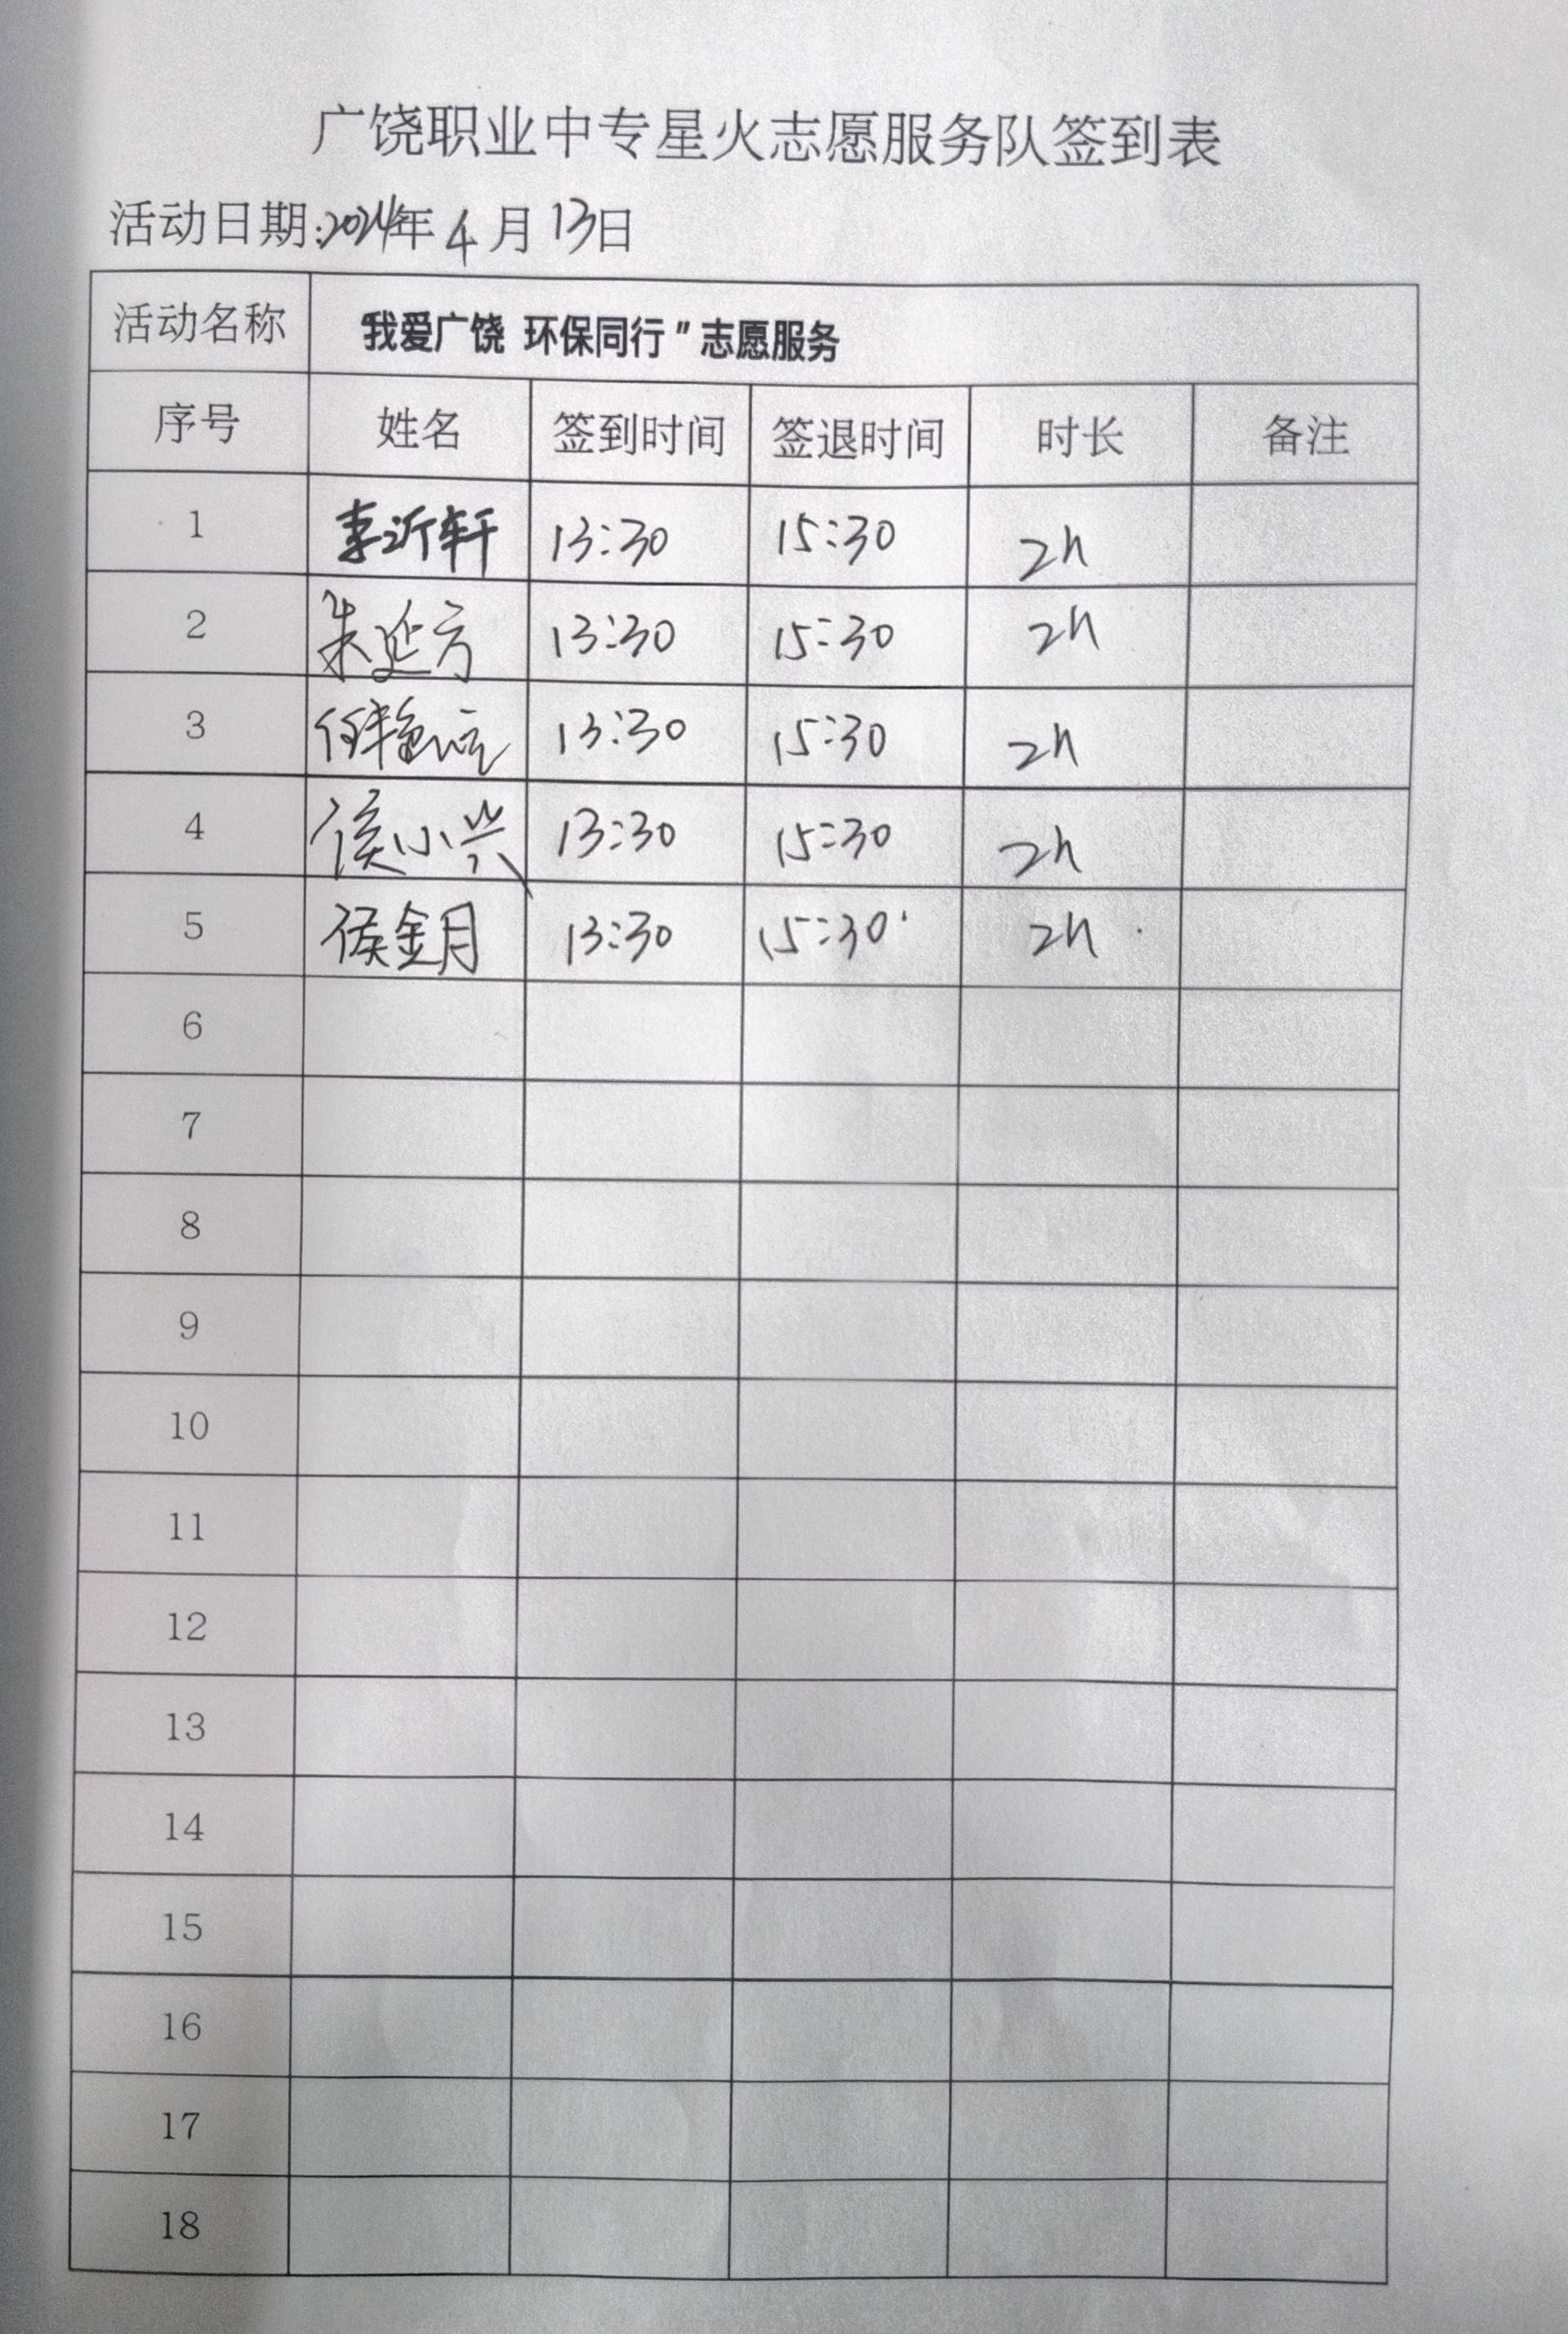 广饶职业中专星火志愿服务队签到表
活动日期:2024年4月13日
活动名称 “我爱广饶 环保同行”志愿服务
序号 姓名 签到时间 签退时间 时长 备注
1 李沂轩 13:30 15:30 2h
2 朱延方 13:30 15:30 2h
3 13:30 15:30 2h
4 侯小兴 13:30 15:30 2h
5 侯金月 13:30 15:30 2h
6
7
8
9
10
11
12
13
14
15
16
17
18